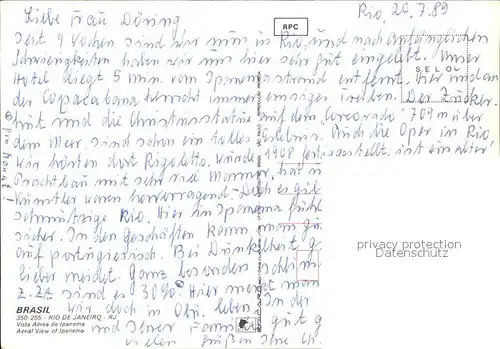 Rio, 20.7.89
Liebe Frau Döring
RPC
Seit 4 Wochen sind wir nun in Rio, und nach anfänglichen
Schwierigkeiten haben wir uns hier sehr gut eingelebt. Unser
SELO
Hotel liegt 5 min. vom Ipanemastrand entfernt. Hier und an
der Copacabana herrscht immer emsiges Treiben. Der Zucker-
hut und die Christusstatue auf dem Corcovado 709 m über
dem Meer, sind schon ein tolles Erlebnis. Auch die Oper in Rio
wir hörten dort Rigoletto, wurde 1908 fertiggestellt, ist ein alter
Prachtbau mit sehr viel Marmor, hat
Künstler waren hervorragend. Doch es gibt
schmutzige Rio. Hier in Ipanema fühlt
sicher. In den Geschäften kann man
auf portugiesisch. Bei Dunkelheit
lieber meidet. Ganz besonders schlimm
z.Zt sind es 30%. Hier merkt man
pro Monat!
wir doch in Obj. leben. In der
und Ihrer Familie gut
vielen Grüßen Ihre
BRASIL
350-255 - RIO DE JANEIRO - RJ
Vista Aérea de Ipanema
Aerial View of Ipanema
privacy protection
Datenschutz